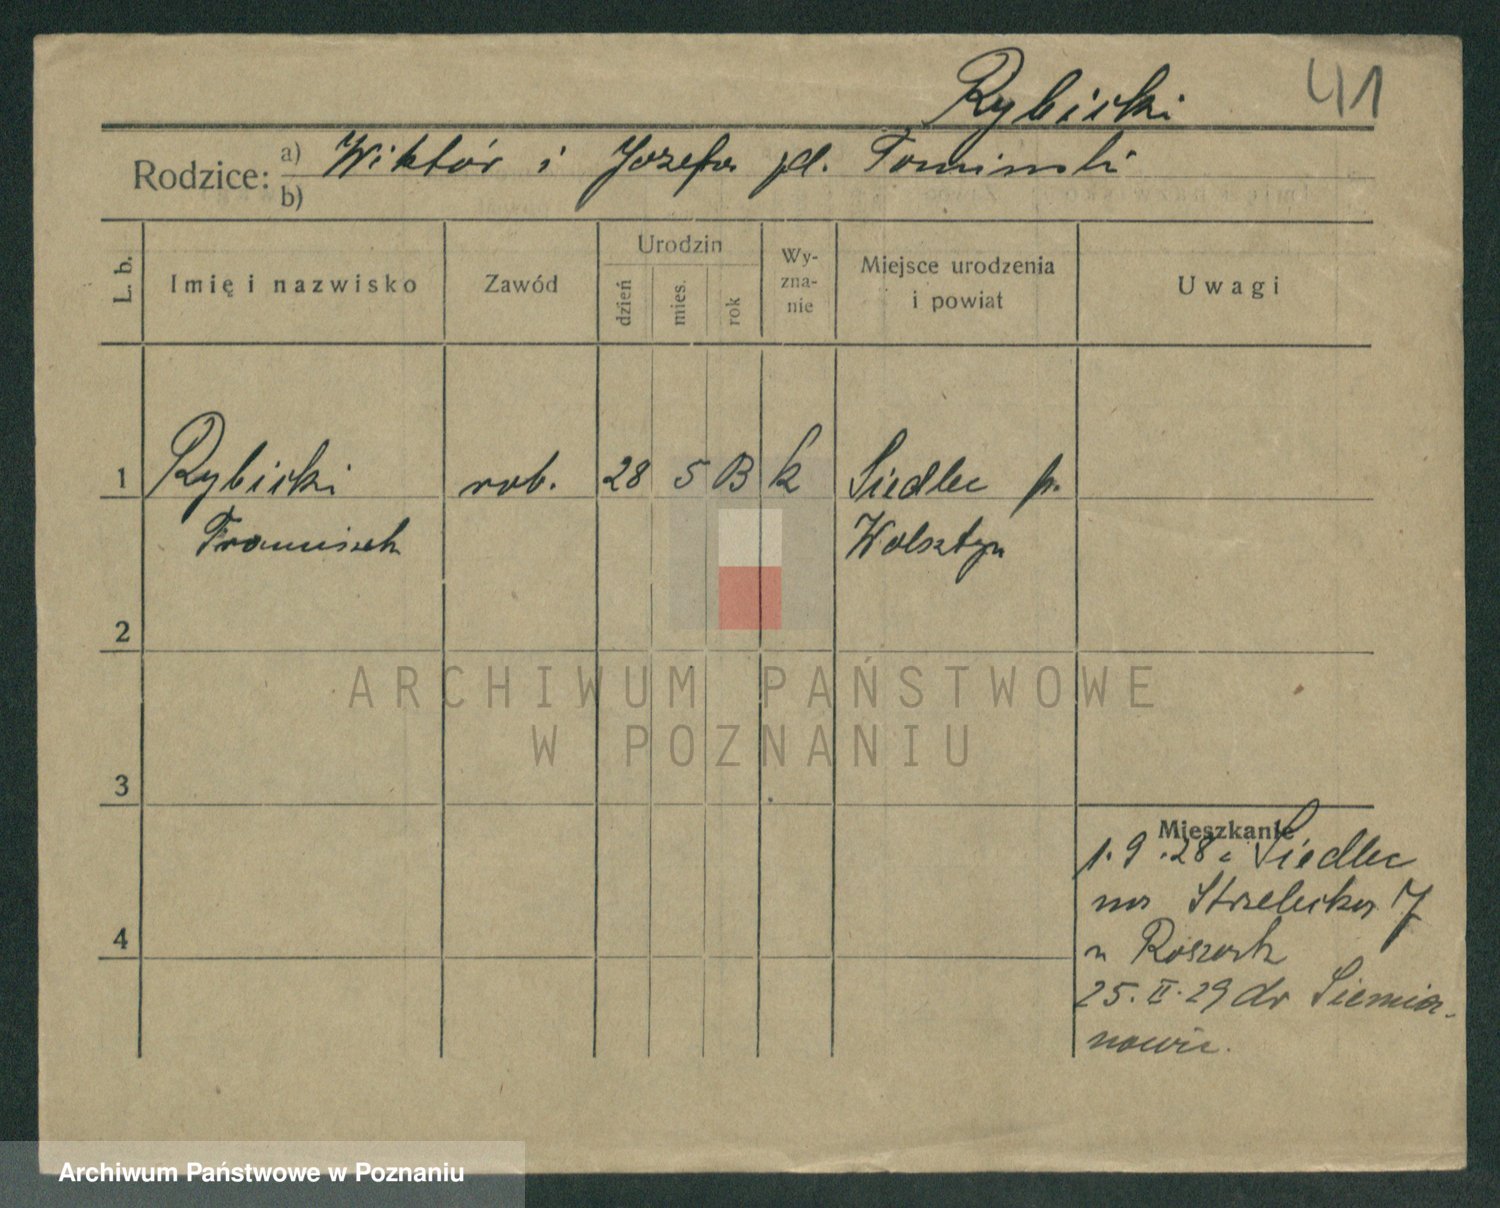 Rybicki 41
Rodzice: a) Wiktór i Józefa
b)
L. b. Imię i nazwisko Zawód Urodzin dzień mies. rok Wy-zna-nie Miejsce urodzenia i powiat Uwagi
1 Rybicki rob. 28 5 k Siedlec p.
Franciszek Wolsztyn
2
ARCHIWUM PAŃSTWOWE
W POZNANIU
3
Mieszkanie
1.9.28 z Siedlec
na Strzelecka 7
u
4
25.II.29 do Siemia-
nowic.
Archiwum Państwowe w Poznaniu